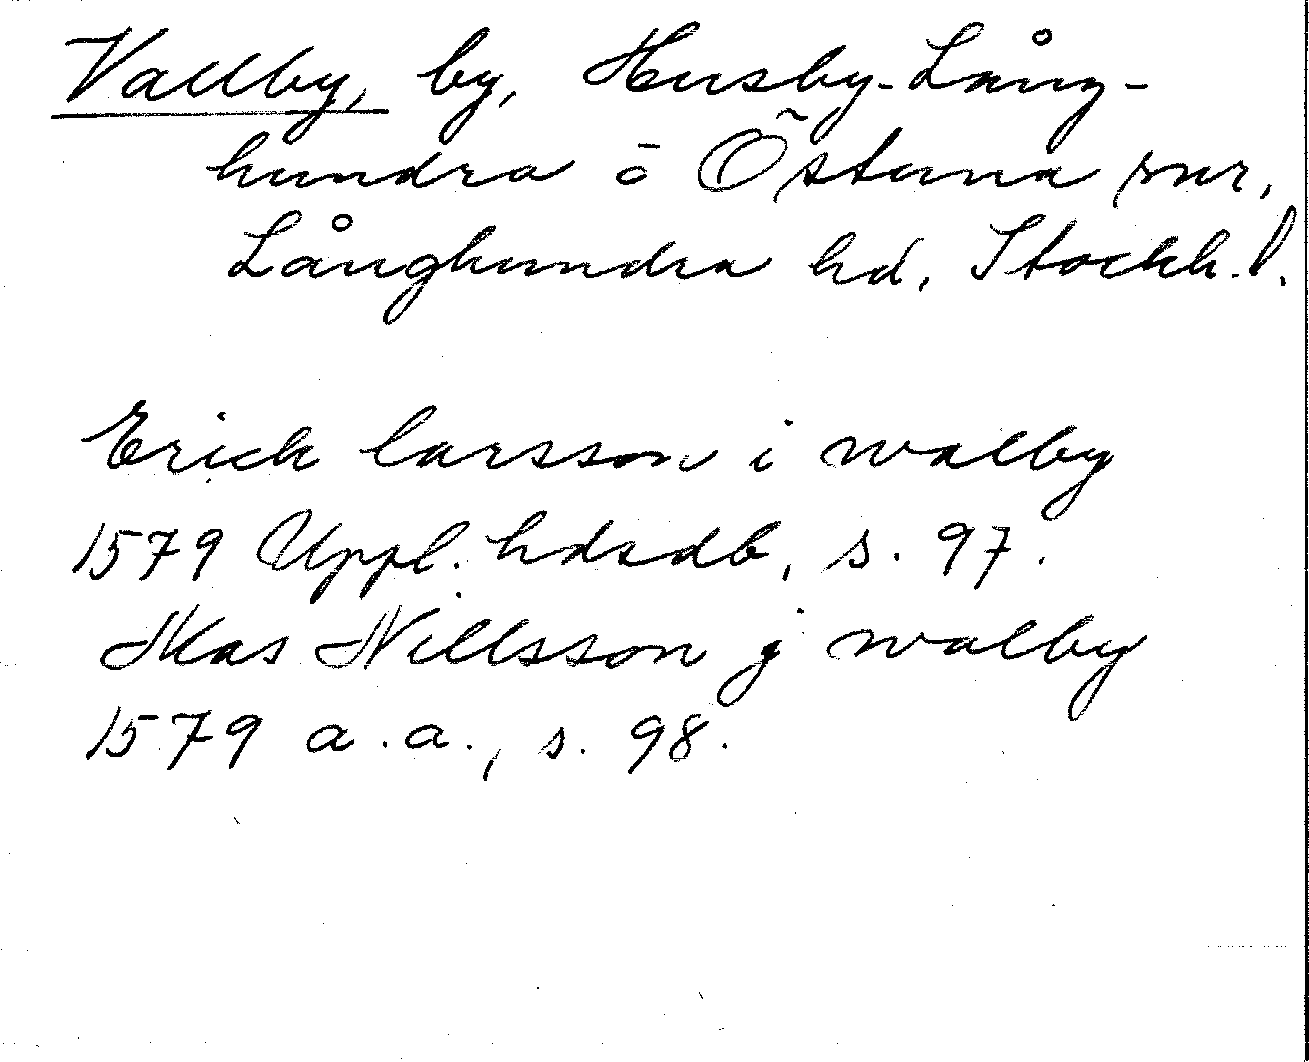 Vallby, by, Husby-Lång-
hundra o Östuna snr,
Långhundra hd, Stockh.l.
Erick larsson i walby
1579 Uppl. hdsdb, s. 97.
Mas Nillsson j walby
1579 a.a., s. 98.